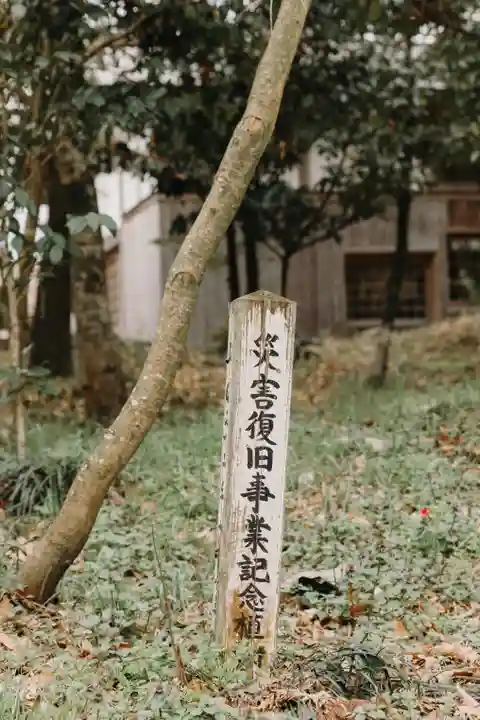 災害復旧事業記念植